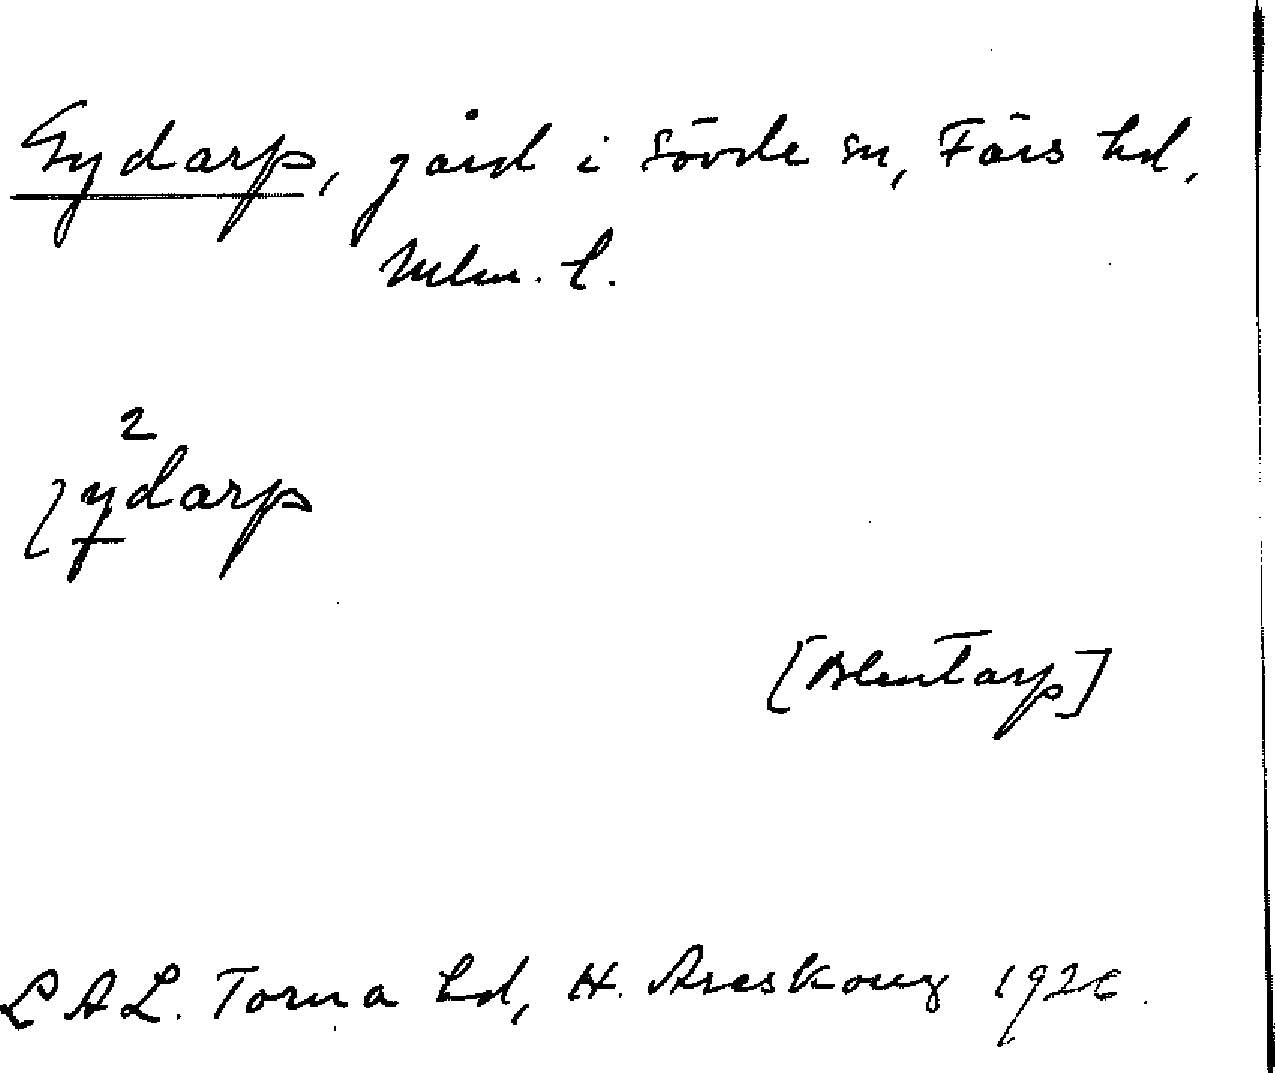 Gydarp, gård i Sövde sn, Färs hd,
Mlm. l.
2
ydarp
[Blentarp]
L A L. Torna hd, H. Areskoug 1926.